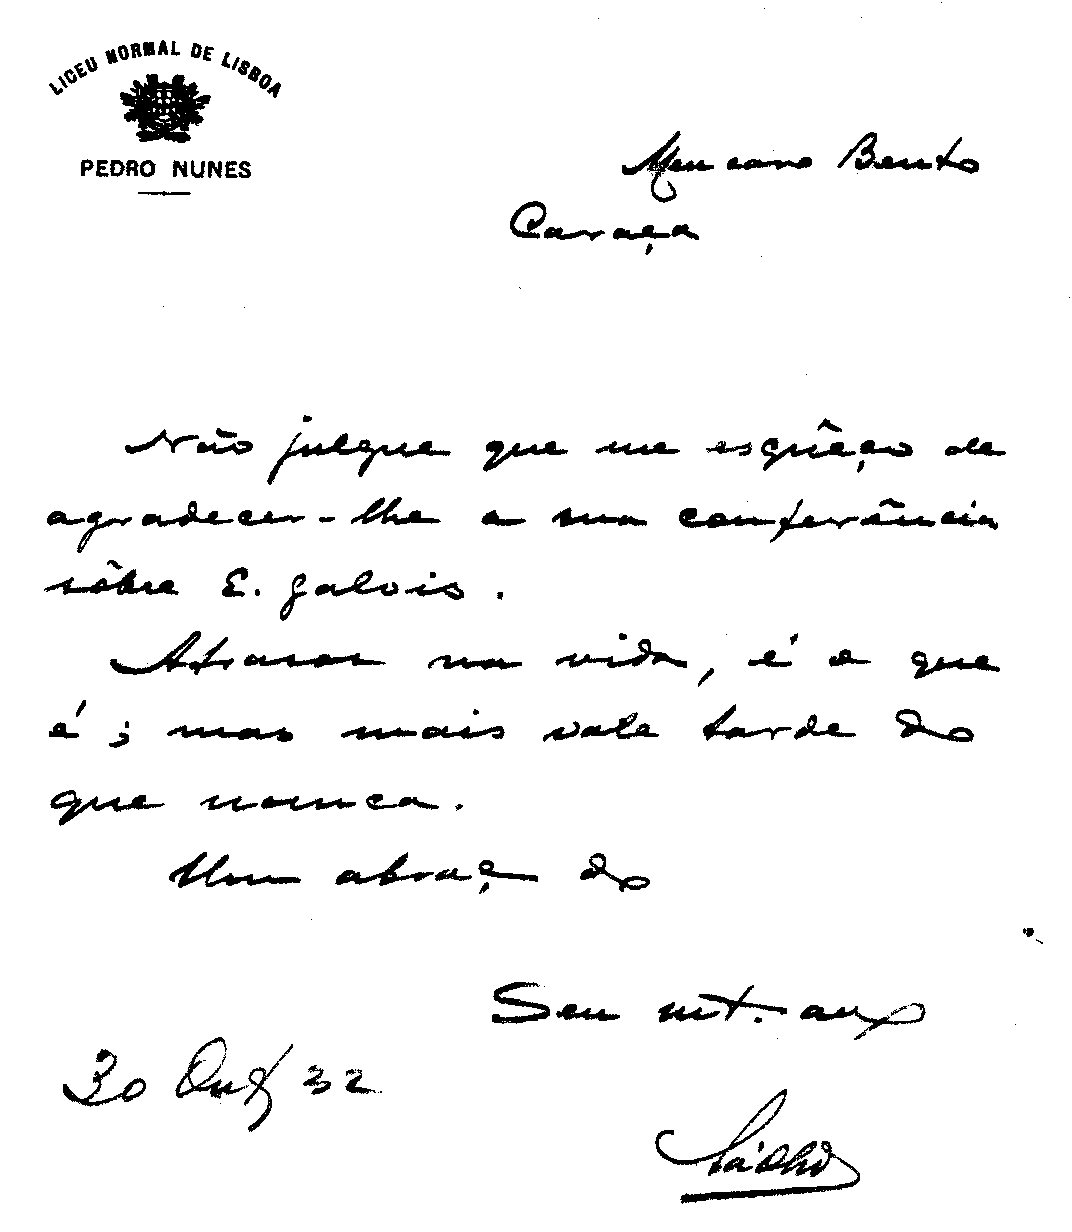 LICEU NORMAL DE LISBOA
PEDRO NUNES
Meu caro Bento
Caraça
Não julgue que me esqueço de
agradecer-lhe a sua conferência
sôbre E. Galois.
Atrasos na vida, é o que
é; mas mais vale tarde do
que nunca.
Um abraço do
Seu mt.
30 Out 32